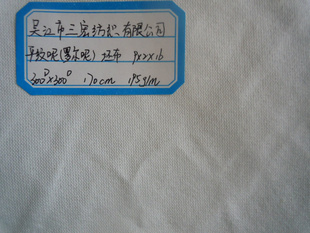 吴江市三宏纺织有限公司
平纹呢(罗尔呢) 坯布 92x26
300D×300D 170cm 195g/m